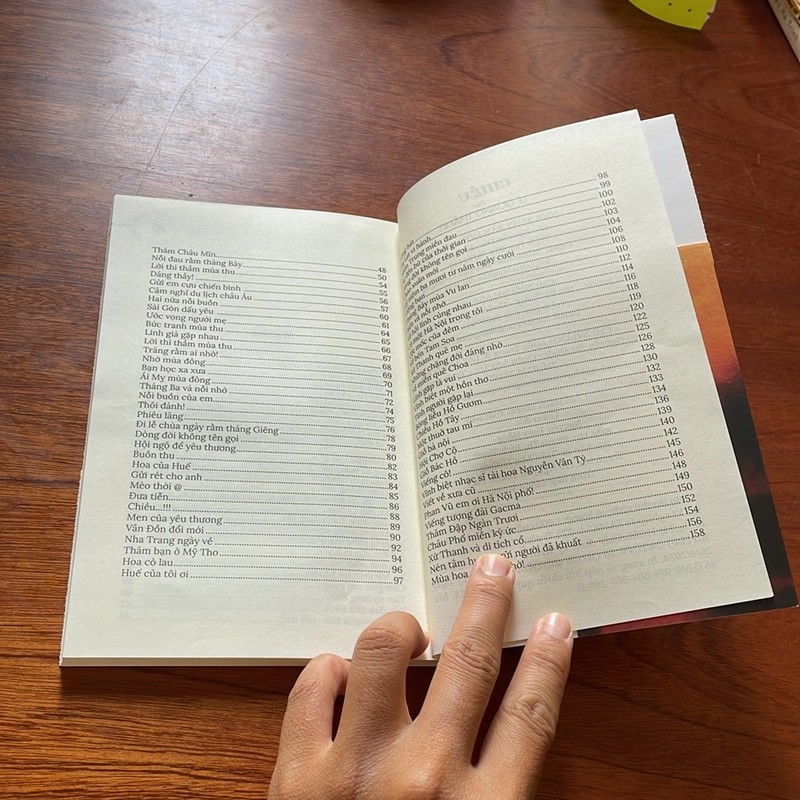 Thăm Châu Mĩn 48
Nỗi đau rằm tháng Bảy 50
Lời thì thầm mùa thu 54
Dáng thầy! 55
Gửi em cựu chiến binh 56
Cảm nghĩ du lịch châu Âu 57
Hai nửa nỗi buồn 60
Sài Gòn dấu yêu 61
Ước vọng người mẹ 64
Bức tranh mùa thu 65
Lính già gặp nhau 66
Lời thì thầm mùa thu 67
Trăng rằm ai nhớ! 68
Nhớ mùa đông 69
Bạn học xa xưa 70
Ái Mỵ mùa đông 71
Tháng Ba và nỗi nhớ 72
Nỗi buồn của em 74
Thôi đành! 75
Phiêu lãng 76
Đi lễ chùa ngày rằm tháng Giêng 78
Dòng đời không tên gọi 79
Hội ngộ để yêu thương 80
Buồn thu 82
Hoa của Huế 83
Gửi rét cho anh 84
Mèo thời @ 85
Đưa tiễn 86
Chiều...!!! 88
Men của yêu thương 89
Vân Đồn đổi mới 90
Nha Trang ngày về 92
Thăm bạn ở Mỹ Tho 94
Hoa cỏ lau 96
Huế của tôi ơi 97
hát 98
hành 99
Trung miền đau 100
bà của thời gian 102
đời không tên gọi 103
xuân mới 104
ba mươi tư năm ngày cưới 106
bạn 108
Bảy mùa Vu lan 110
và nỗi nhớ 112
lính cùng nhau 114
Hà Nội trong tôi 116
mốc của đêm 118
bến Tam Soa 119
Thành quê mẹ 120
chặng đời đáng nhớ 122
miền quê Choa 125
gặp là vui 126
biệt một hồn thơ 128
người gặp lại 130
liễu Hồ Gươm 132
Chiều Hồ Tây 133
Một thuở tau mi 134
Giỗ bà nội 136
Hội Chợ Cộ 139
Giỗ Bác Hồ 140
Viếng cô! 142
Vĩnh biệt nhạc sĩ tài hoa Nguyễn Văn Tý 145
Viết về xưa cũ 146
Phan Vũ em ơi Hà Nội phố! 148
Viếng tượng đài Gacma 149
Thăm Đập Ngàn Trươi 150
Châu Phố miền ký ức 152
Xứ Thanh và di tích cổ 154
Nén tâm gửi người đã khuất 156
Mùa hoa 158